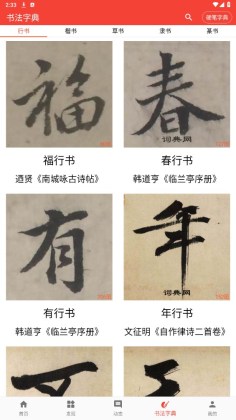 3:33
书法字典
硬笔字典
行书 楷书 草书 隶书 篆书
福
春
词典网
福行书
春行书
迺贤《南城咏古诗帖》
韩道亨《临兰亭序册》
有
年
词典网
有行书
年行书
韩道亨《临兰亭序册》
文征明《自作律诗二首卷》
首页 发现 动态 书法字典 我的